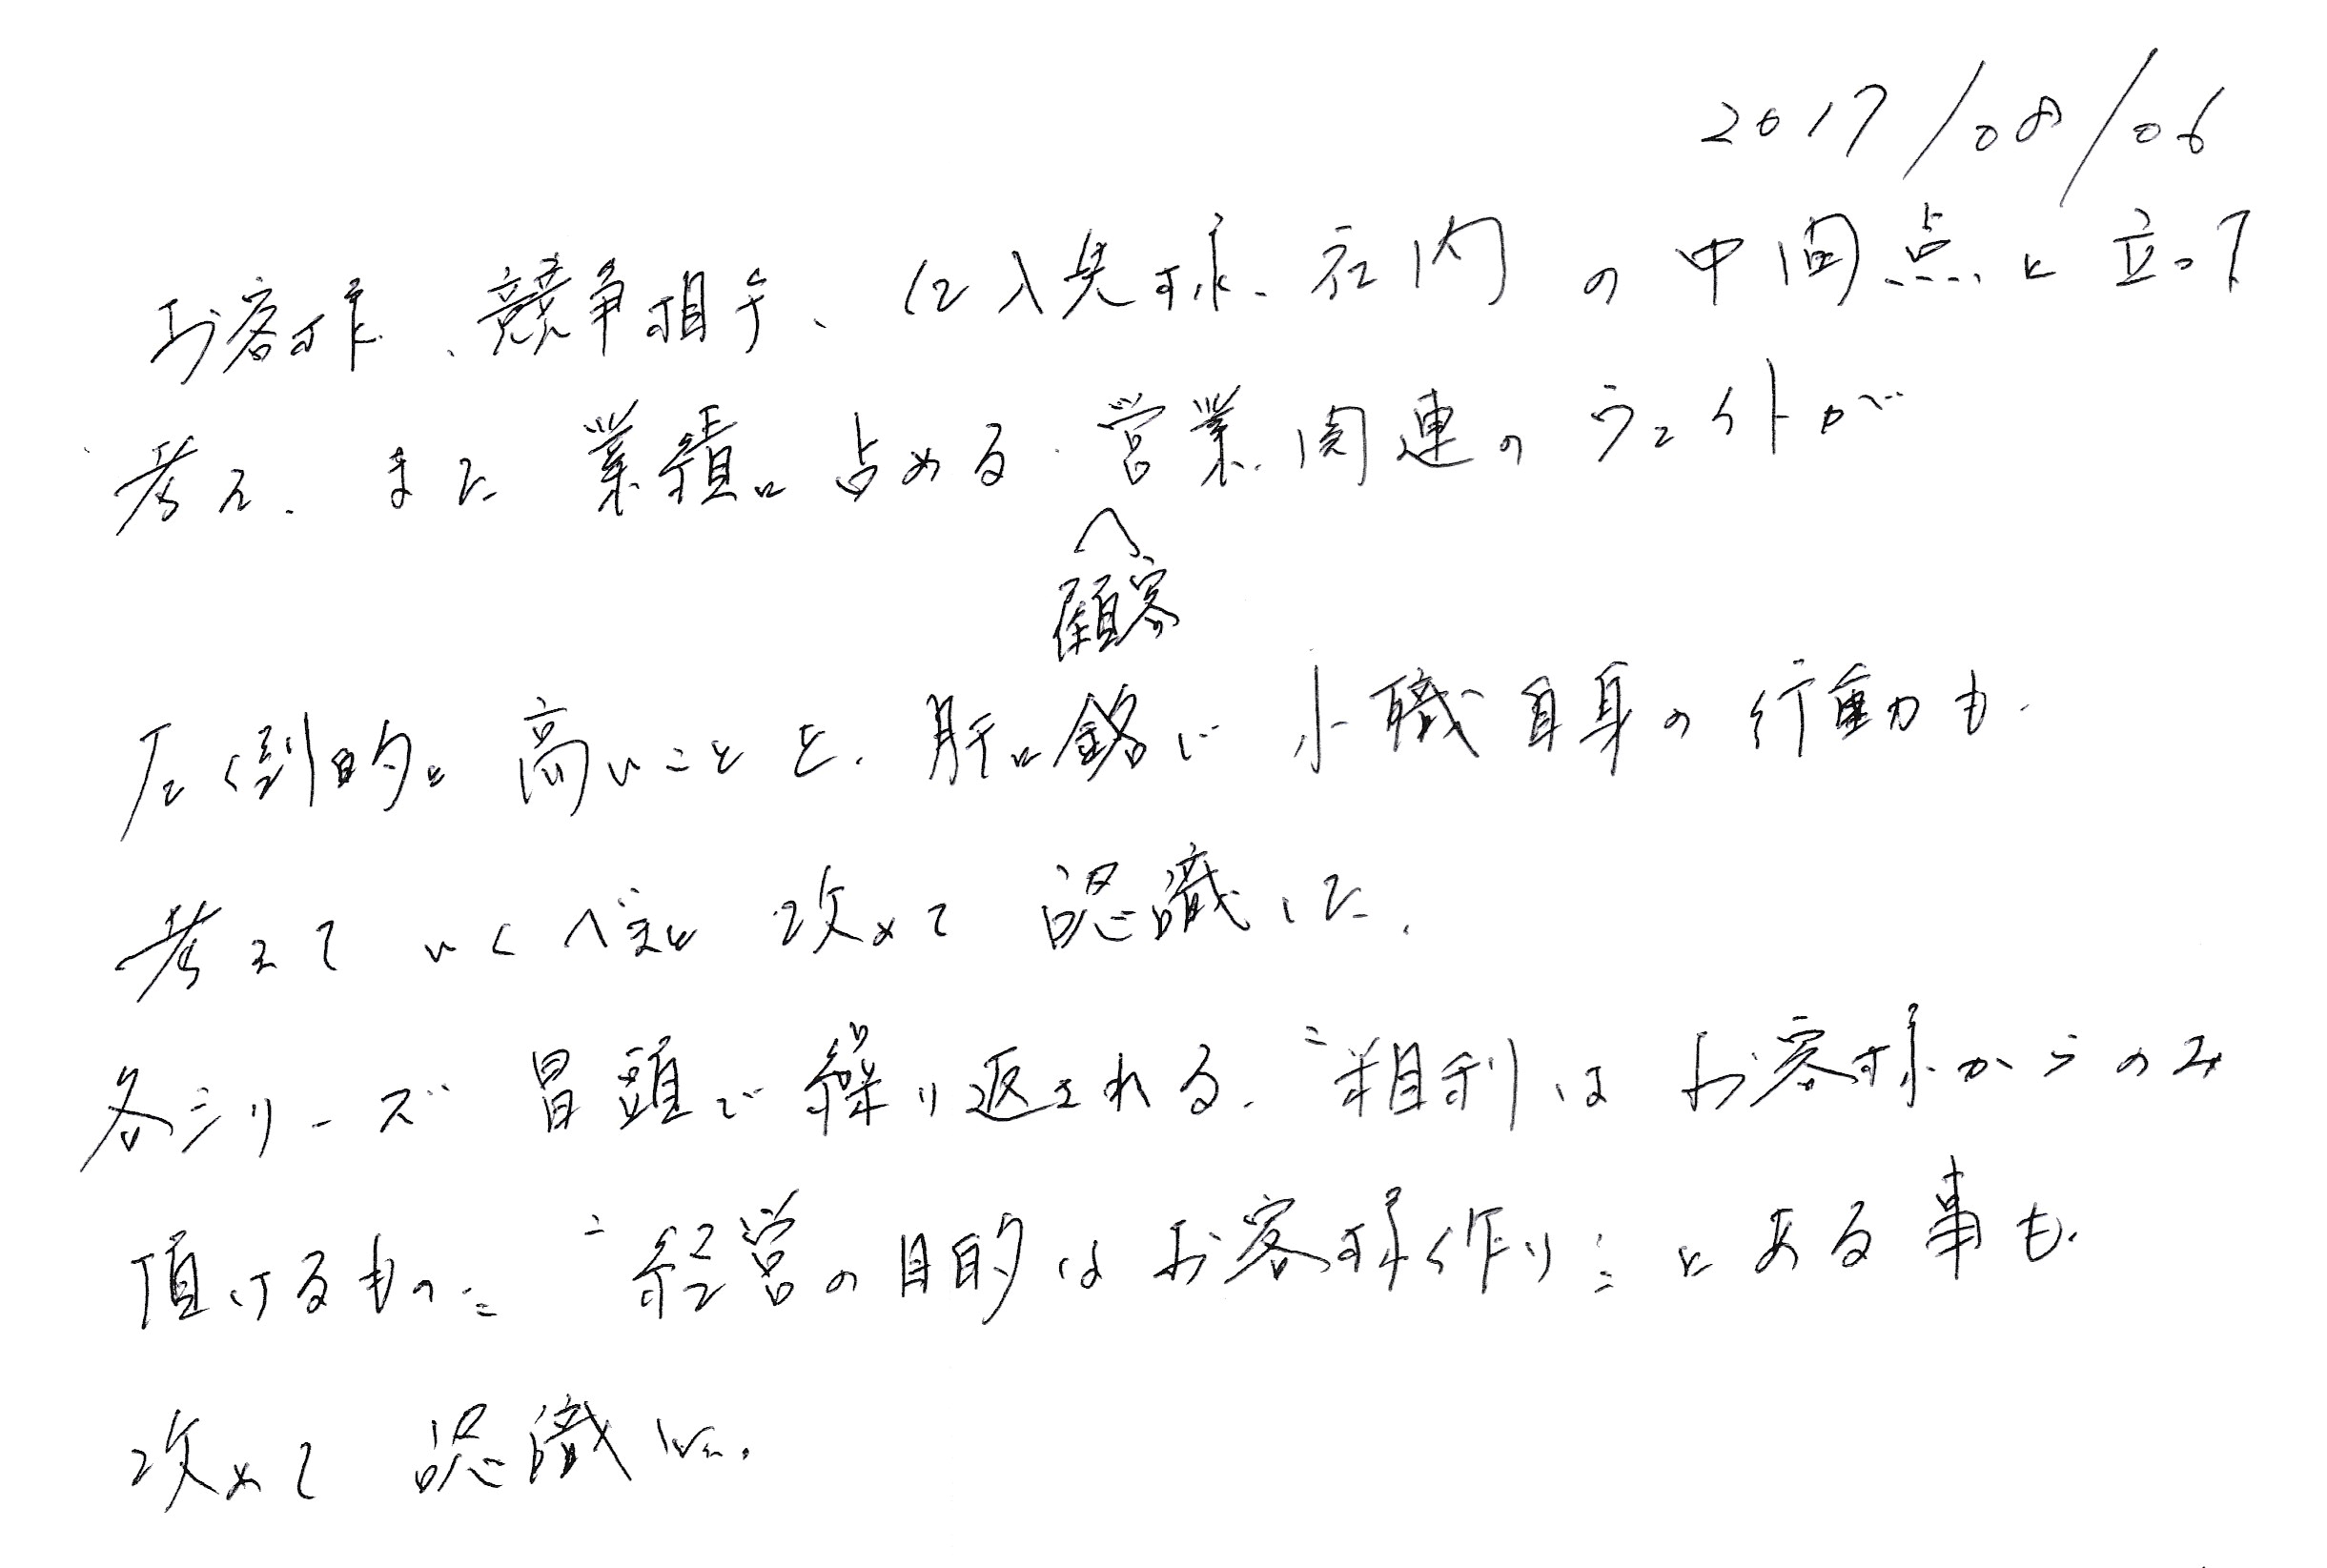 2017/08/06
お客様、競争相手、仕入先様、社内の中間点に立って
考え、また業績に占める営業関連のウェイトが
顧客
圧倒的に高いことを、肝に銘じ小職自身の行動も、
考えていくべきと改めて認識した。
各シリーズ冒頭で繰り返される、"粗利はお客様からのみ
頂けるもの" "経営の目的はお客様作り"にある事も、
改めて認識した。